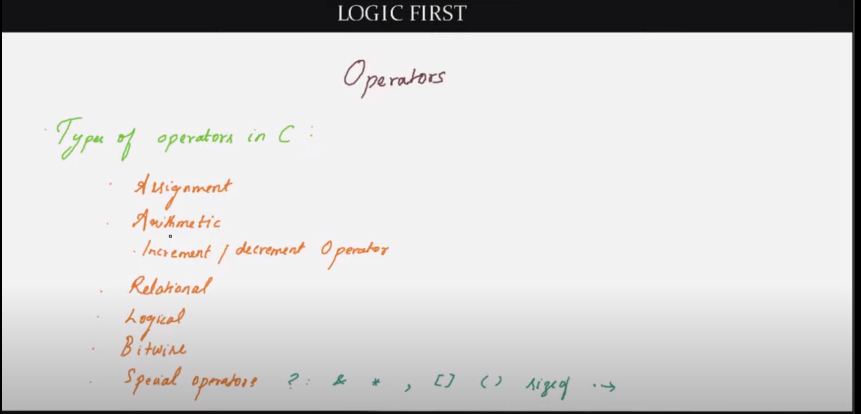 LOGIC FIRST
Operators
Types of operators in C :
· Assignment
· Arithmetic
· Increment / decrement Operator
· Relational
· Logical
· Bitwise
· Special operators ?: & * , [] () sizeof . →